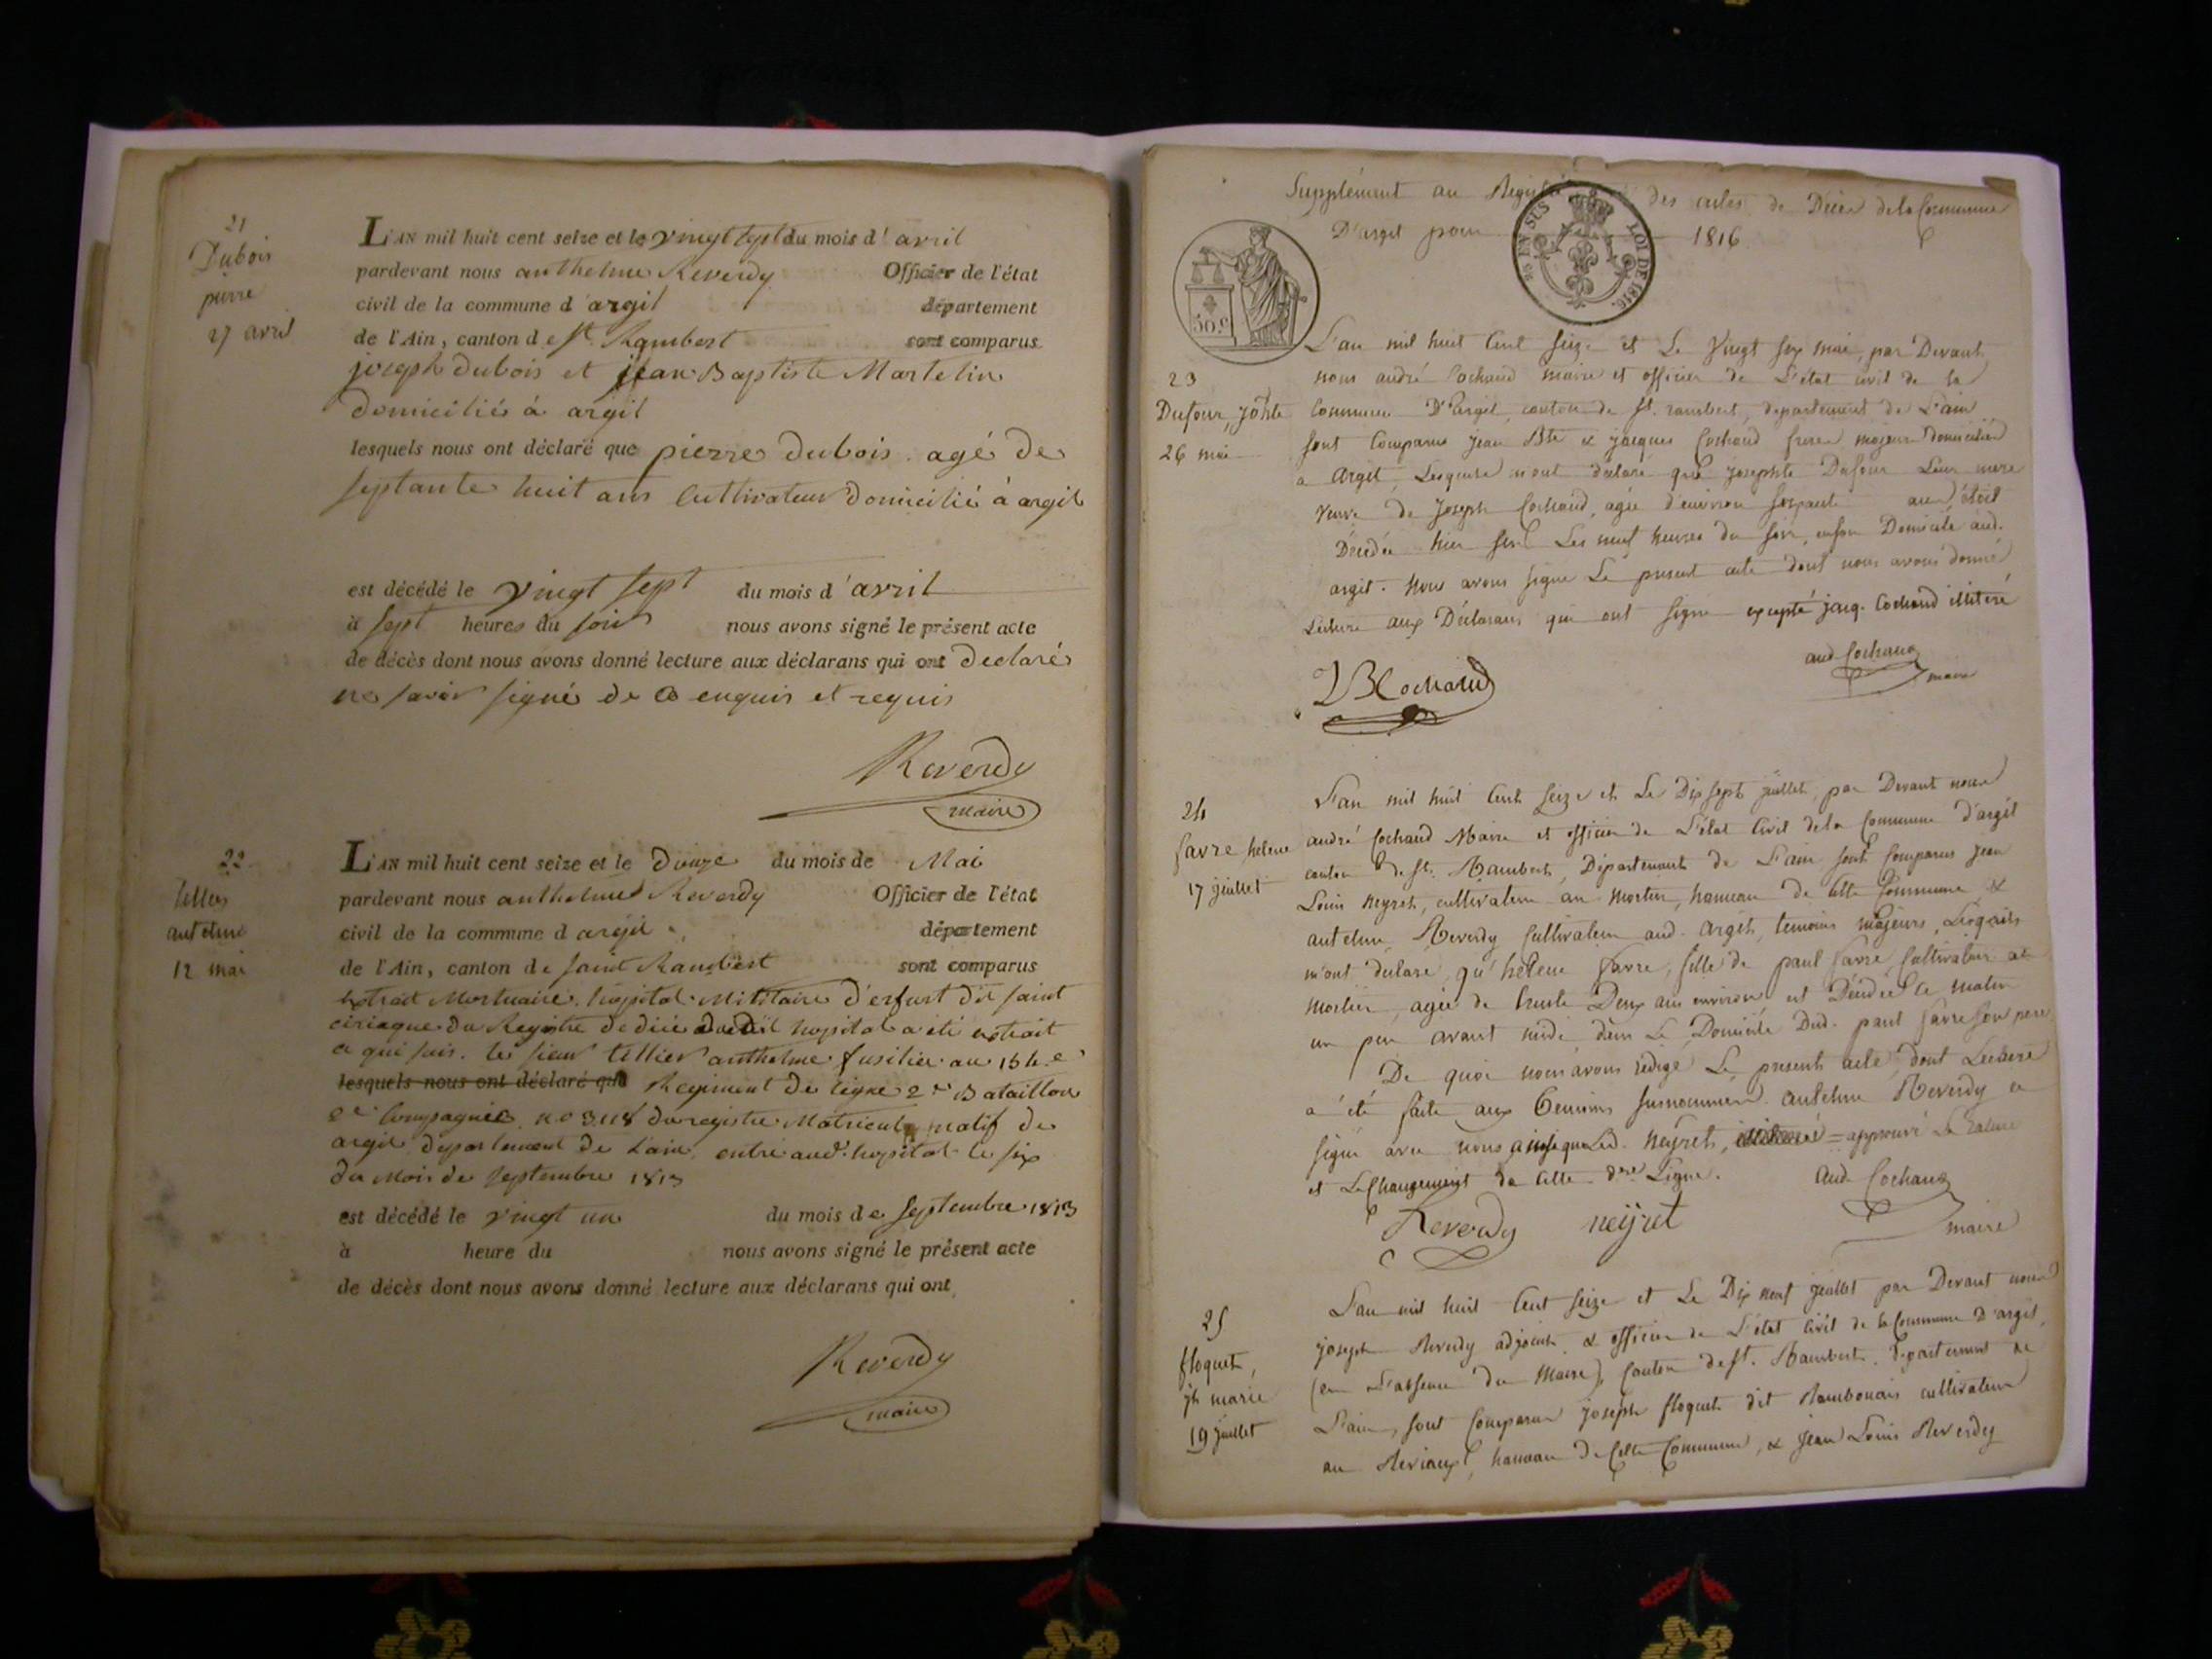 21
Dubois
pierre
27 avril
L'AN mil huit cent seize et le vingt sept du mois d'avril
pardevant nous anthelme Reverdy Officier de l'état
civil de la commune d'argil département
de l'Ain, canton de St. Rambert sont comparus
joseph dubois et jean Baptiste Martelin
domiciliés à argil
lesquels nous ont déclaré que pierre dubois agé de
septante huit ans Cultivateur Domicilié à argil
est décédé le vingt sept du mois d'avril
à sept heures du soir nous avons signé le présent acte
de décès dont nous avons donné lecture aux déclarans qui ont declaré
ne savoir signé de ce enquis et requis
Reverdy
maire
22
tellier
antelme
12 mai
L'AN mil huit cent seize et le Douze du mois de Mai
pardevant nous anthelme Reverdy Officier de l'état
civil de la commune d argil département
de l'Ain, canton de saint Rambert sont comparus
extrait Mortuaire. hôpital Militaire d'erfurt dit saint
ciriaque du Registre de décès dudit hopital a été extrait
ce qui suis. le sieur tellier anthelme fusilier au 154.e
lesquels nous ont déclaré que Regiment de ligne 2e Bataillon
2e Compagnie no 3118 du registre Matricule natif de
argil departement de L'ain, entré aud. hopital le six
du Mois de septembre 1813
est décédé le vingt un du mois de septembre 1813
à heure du nous avons signé le présent acte
de décès dont nous avons donné lecture aux déclarans qui ont
Reverdy
maire
Supplément au Registre des actes de Décès de la Commune
D'argil pour 1816
EN SUS LOI DE 1816.
50.c
23
Dufour, Jophte
26 mai
L'an mil huit Cent seize et Le Vingt six mai, par Devant
nous andré Cochaud maire et officier de L'état civil de la
Commune D'argil, canton de St. rambert, departement de L'ain
sont Comparus jean Bte & jacques Cochaud freres majeurs domiciliés
a argil, Lesquels m'ont déclaré que josephte Dufour Leur mere
veuve de Joseph Cochaud, agée d'environ soixante ans, étoit
Décédée hier sur Les neuf heures du soir, en son Domicile aud.
argil. Nous avons signé Le present acte dont nous avons donné
Lecture aux Déclarans qui ont signé excepté jacq. Cochaud illitéré
JB Cochaud
and Cochaud
maire
24
favre helene
17 juillet
L'an mil huit Cent seize et Le Dix sept juillet, par Devant nous
andré Cochaud Maire et officier de L'état Civil de la Commune d'argil
canton de St. Rambert, Département de L'ain sont Comparus jean
Louis neyret, cultivateur au mortier, hameau de Cette Commune, &
antelme Reverdy Cultivateur aud. argil, temoins majeurs, Lesquels
m'ont declaré, qu'helene favre, fille de paul favre Cultivateur au
mortier, agée de trente Deux ans environ est Décédée ce matin
un peu avant midi dans Le Domicile Dud. paul favre son pere
De quoi nous avons rédigé Le present acte, dont Lecture
a été faite aux temoins susnommés. antelme Reverdy a
signé avec nous ainsi que Led. neyret, = approuvé La rature
et Le Changement de Cette dre Ligne.
Reverdy neyret
And Cochaud
maire
25
floquet,
jh marie
19 juillet
L'an mil huit Cent seize et Le Dix neuf juillet par Devant nous
joseph Reverdy adjoint & officier de L'état Civil de la Commune D'argil,
(en L'absence du Maire) Canton de St. Rambert, departement de
L'ain, sont Comparus joseph floquet dit cultivateur
au hameau de Cette Commune, & jean Louis Reverdy